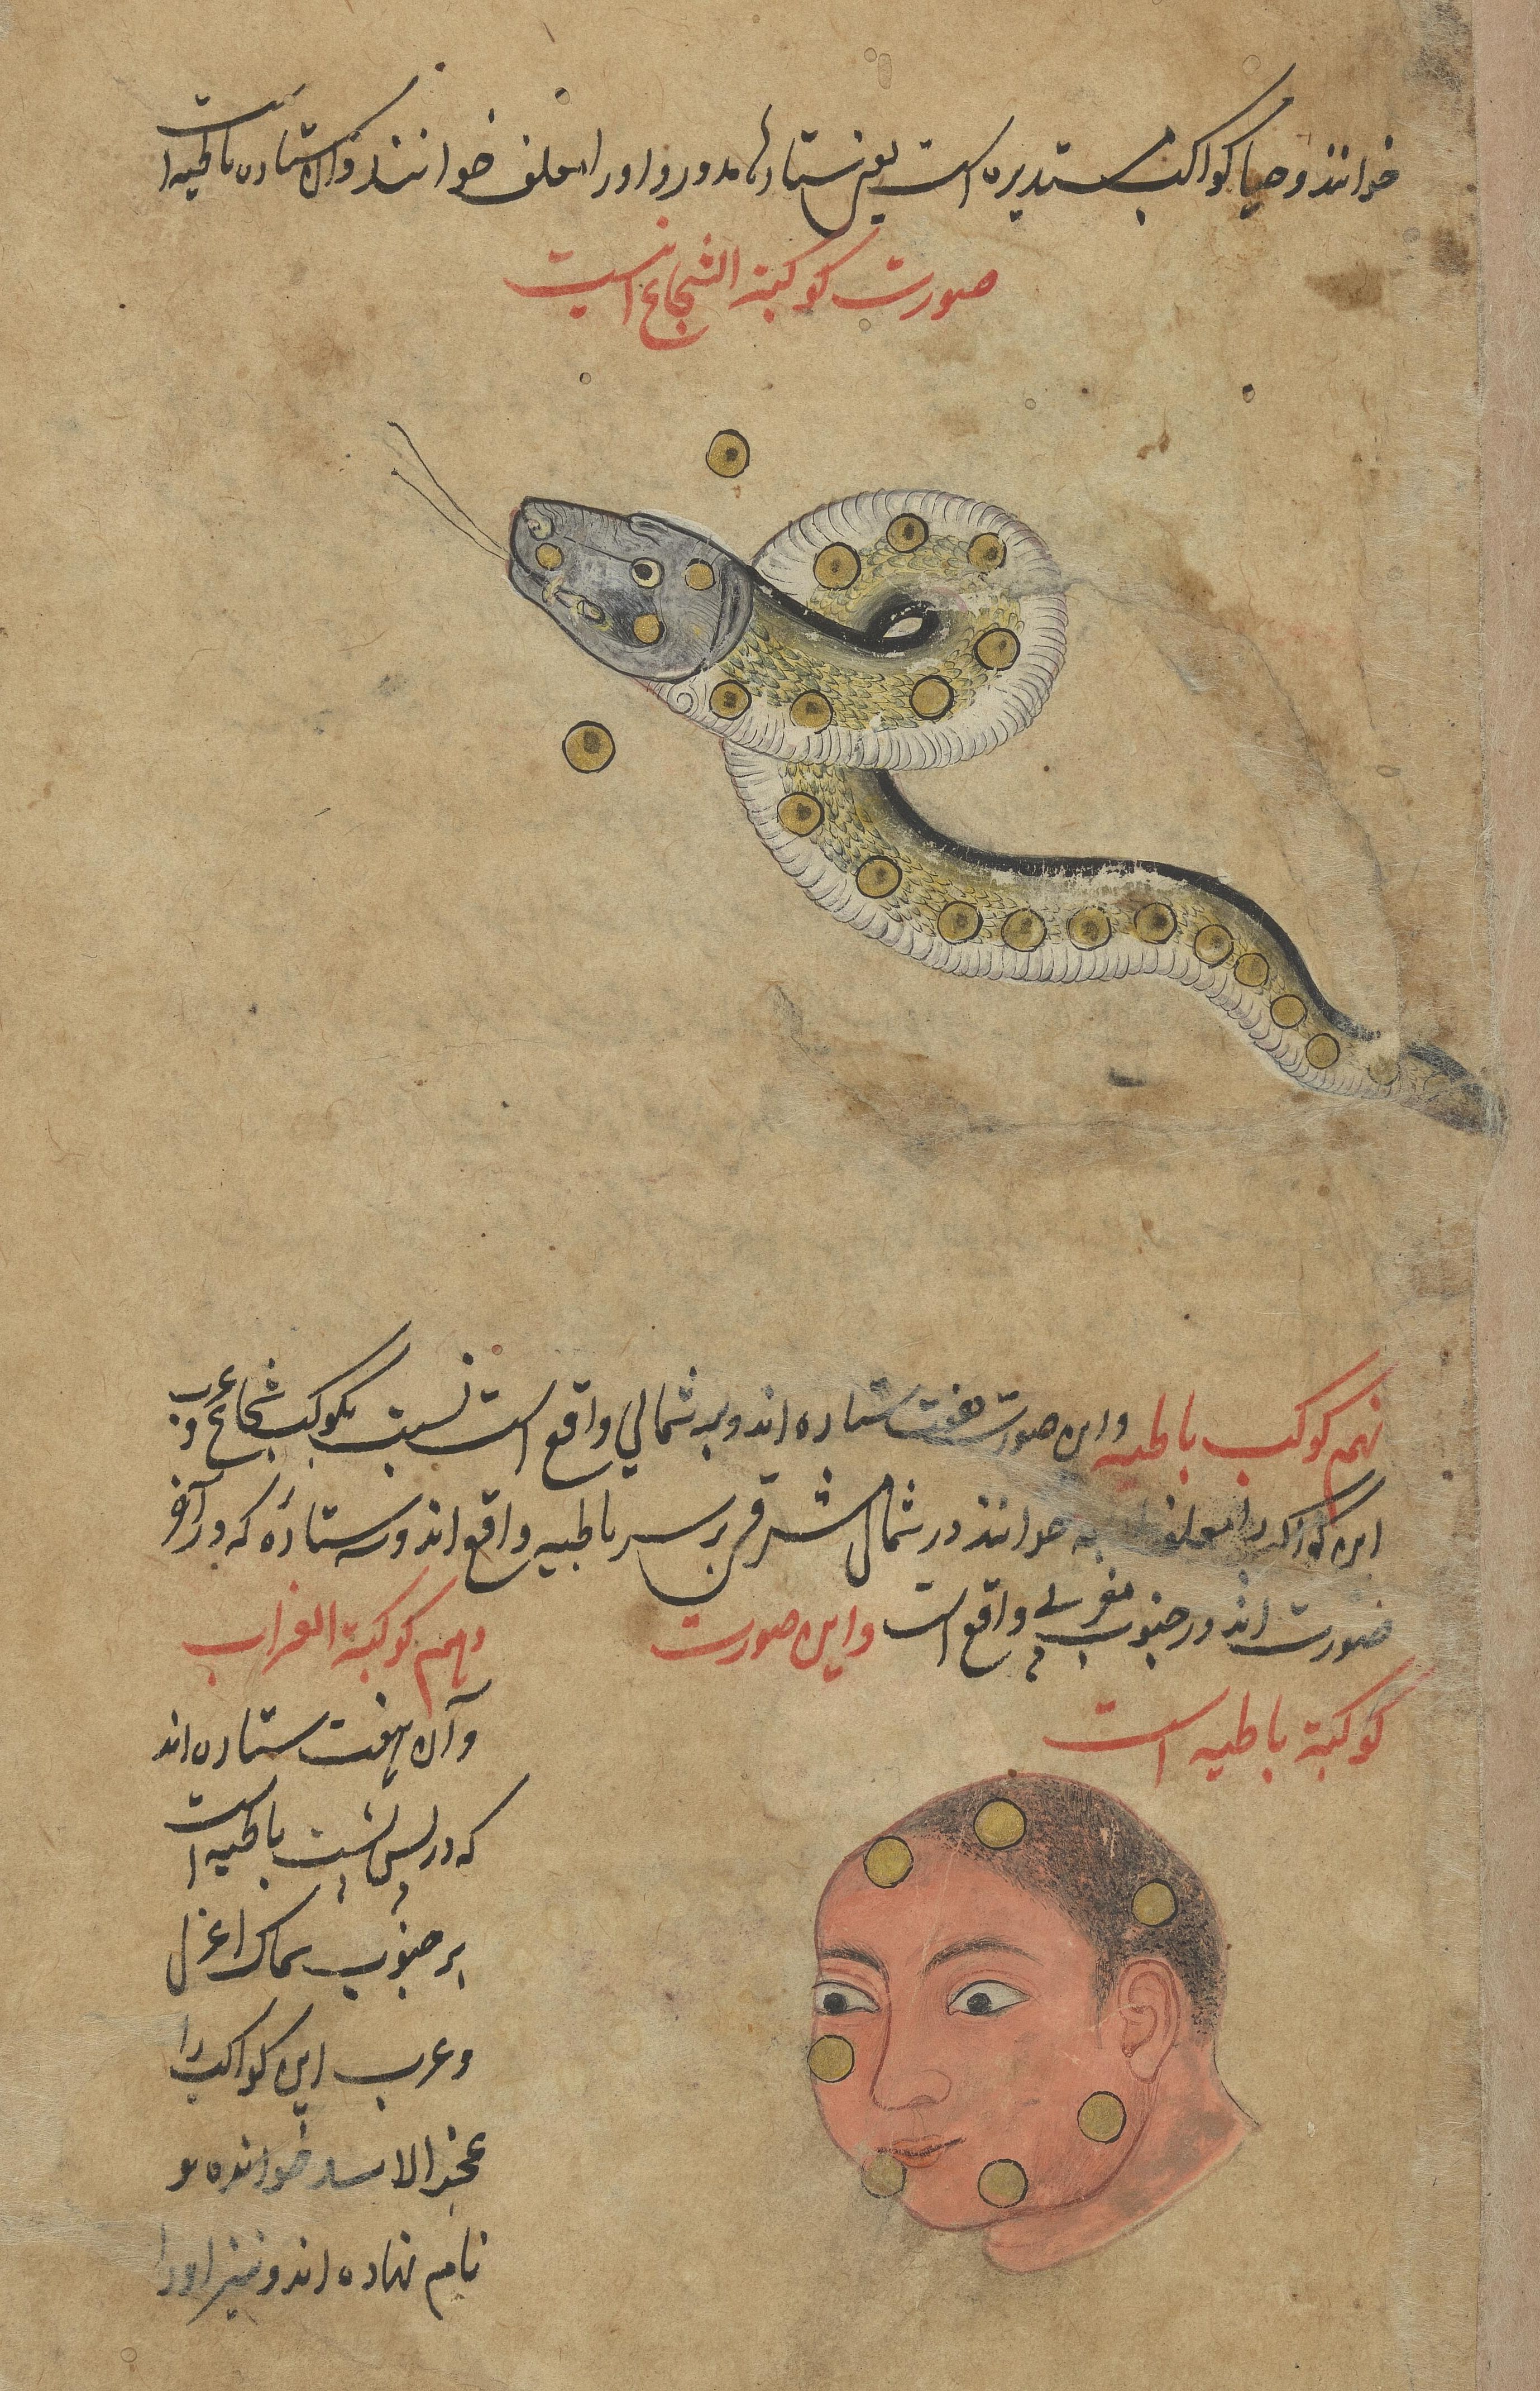 خوانند و حیا کواکب مستدیره است یعنی ستارهای مدور و اورا معلف خوانند و آن ستاره باطیه است
صورت کوکبة الشجاع اینست
نهم کوکب باطیه و این صورت هفت ستاره اند و بر شمالی واقع است نسبت بکوکب شجاع و عرب
این کواکب را معلف خوانند در شمال شرقی بر سر باطیه واقع اند و سه ستارهٔ که در آخر
صورت اند در جنوب مغربی واقع است و این صورت
کوکبة باطیه است
دهم کوکبة الغراب
و آن هفت ستاره اند
که در پس پشت باطیه است
بر جنوب سماک اعزل
و عرب این کواکب را
عجز الاسد خوانده و
نام نهاده اند و نیز او را